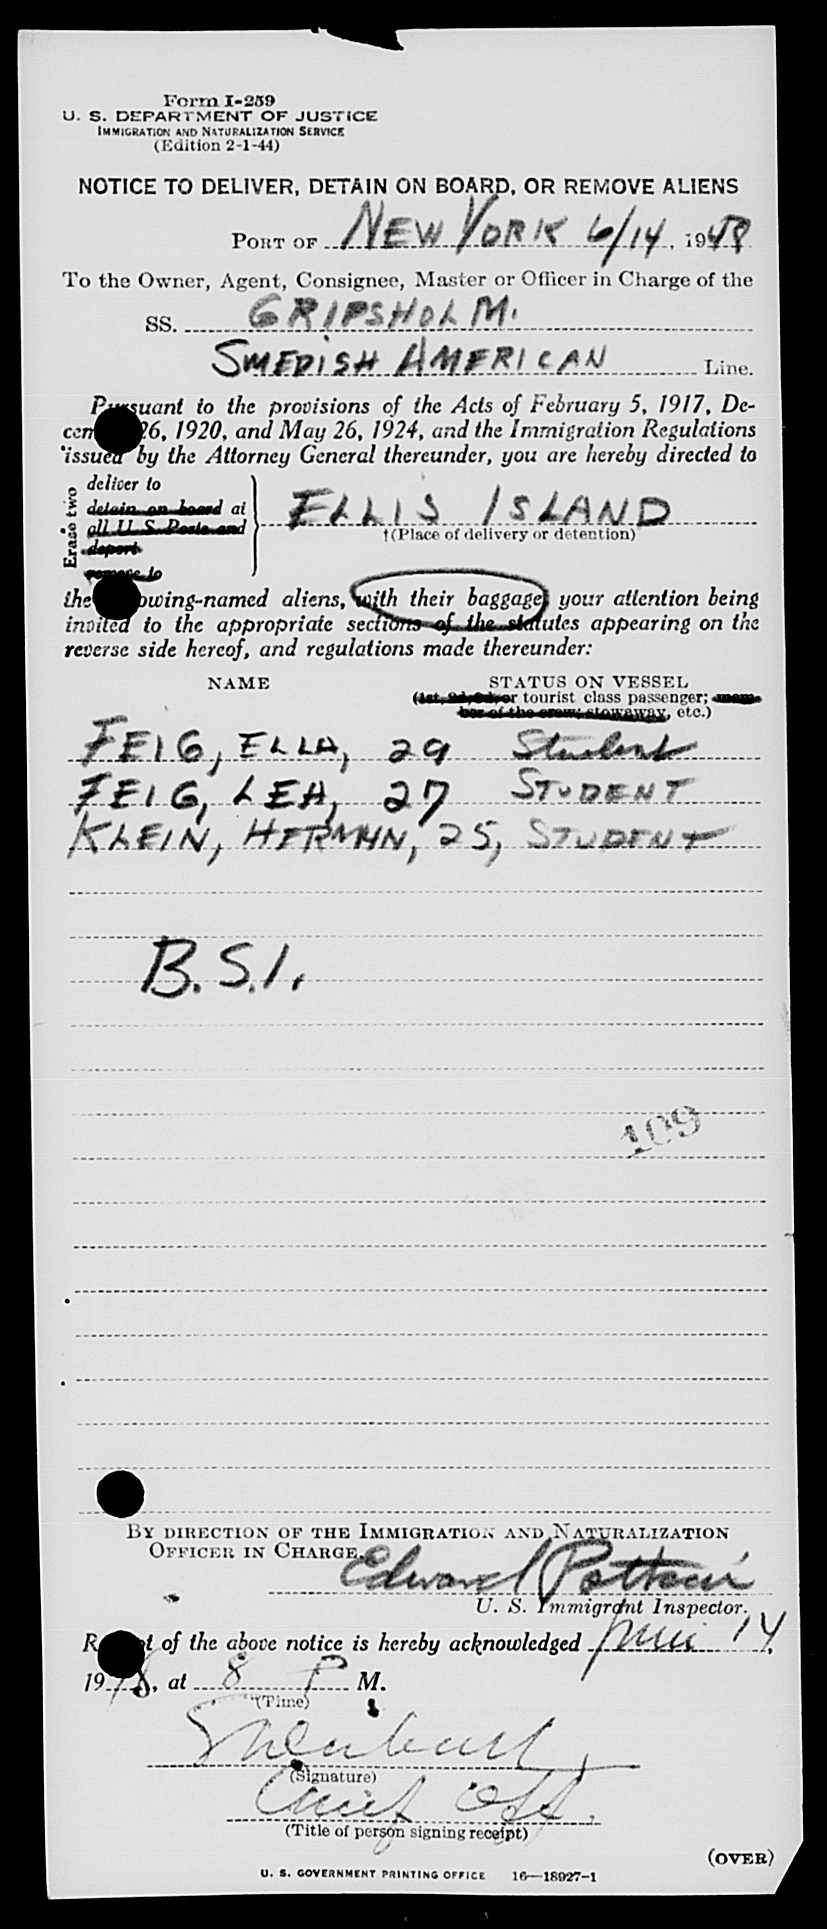 Form I-259
U. S. DEPARTMENT OF JUSTICE
IMMIGRATION AND NATURALIZATION SERVICE
(Edition 2-1-44)
NOTICE TO DELIVER, DETAIN ON BOARD, OR REMOVE ALIENS
PORT OF NEW YORK 6/14, 1948
To the Owner, Agent, Consignee, Master or Officer in Charge of the
SS. GRIPSHOLM.
SWEDISH AMERICAN Line.
Pursuant to the provisions of the Acts of February 5, 1917, De-
cem 26, 1920, and May 26, 1924, and the Immigration Regulations
issued by the Attorney General thereunder, you are hereby directed to
Erase two
deliver to
detain on board at
all U. S. Ports and
deport
remove to
ELLIS ISLAND
†(Place of delivery or detention)
the owing-named aliens, with their baggage, your attention being
invited to the appropriate sections of the statutes appearing on the
reverse side hereof, and regulations made thereunder:
NAME STATUS ON VESSEL
(1st, 2d, 3d, or tourist class passenger; mem-
ber of the crew; stowaway, etc.)
FEIG, ELLA, 29 Student
FEIG, LEA, 27 STUDENT
KLEIN, HERMAN, 25, STUDENT
B.S.I.
109
BY DIRECTION OF THE IMMIGRATION AND NATURALIZATION
OFFICER IN CHARGE.
Edward
U. S. Immigrant Inspector.
R t of the above notice is hereby acknowledged June 14,
1948, at 8 P M.
(Time)
(Signature)
Chief Off.
(Title of person signing receipt)
(OVER)
U. S. GOVERNMENT PRINTING OFFICE 16—18927-1